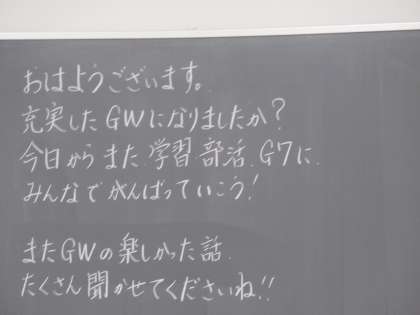 おはようございます。
充実したGWになりましたか？
今日からまた学習.部活.G7に.
みんなでがんばっていこう！
またGWの楽しかった話.
たくさん聞かせてくださいね！！